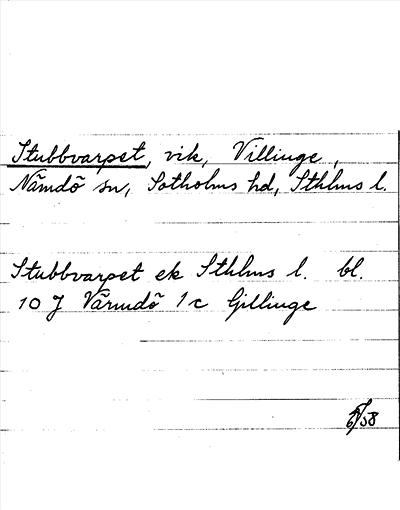 Stubbvarpet, vik, Villinge,
Nämdö sn, Sotholms hd, Sthlms l.
Stubbvarpet ek Sthlms l. bl.
10 J Värmdö 1c Gillinge